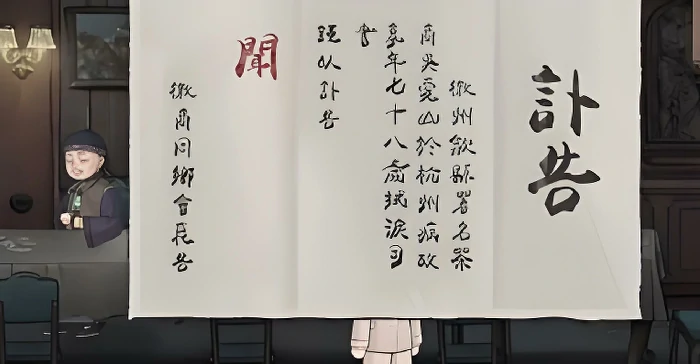 訃告
徽州歙縣著名茶
商吳雲山於杭州病故
享年七十八歲拭淚
以訃告
聞
徽商同鄉會告